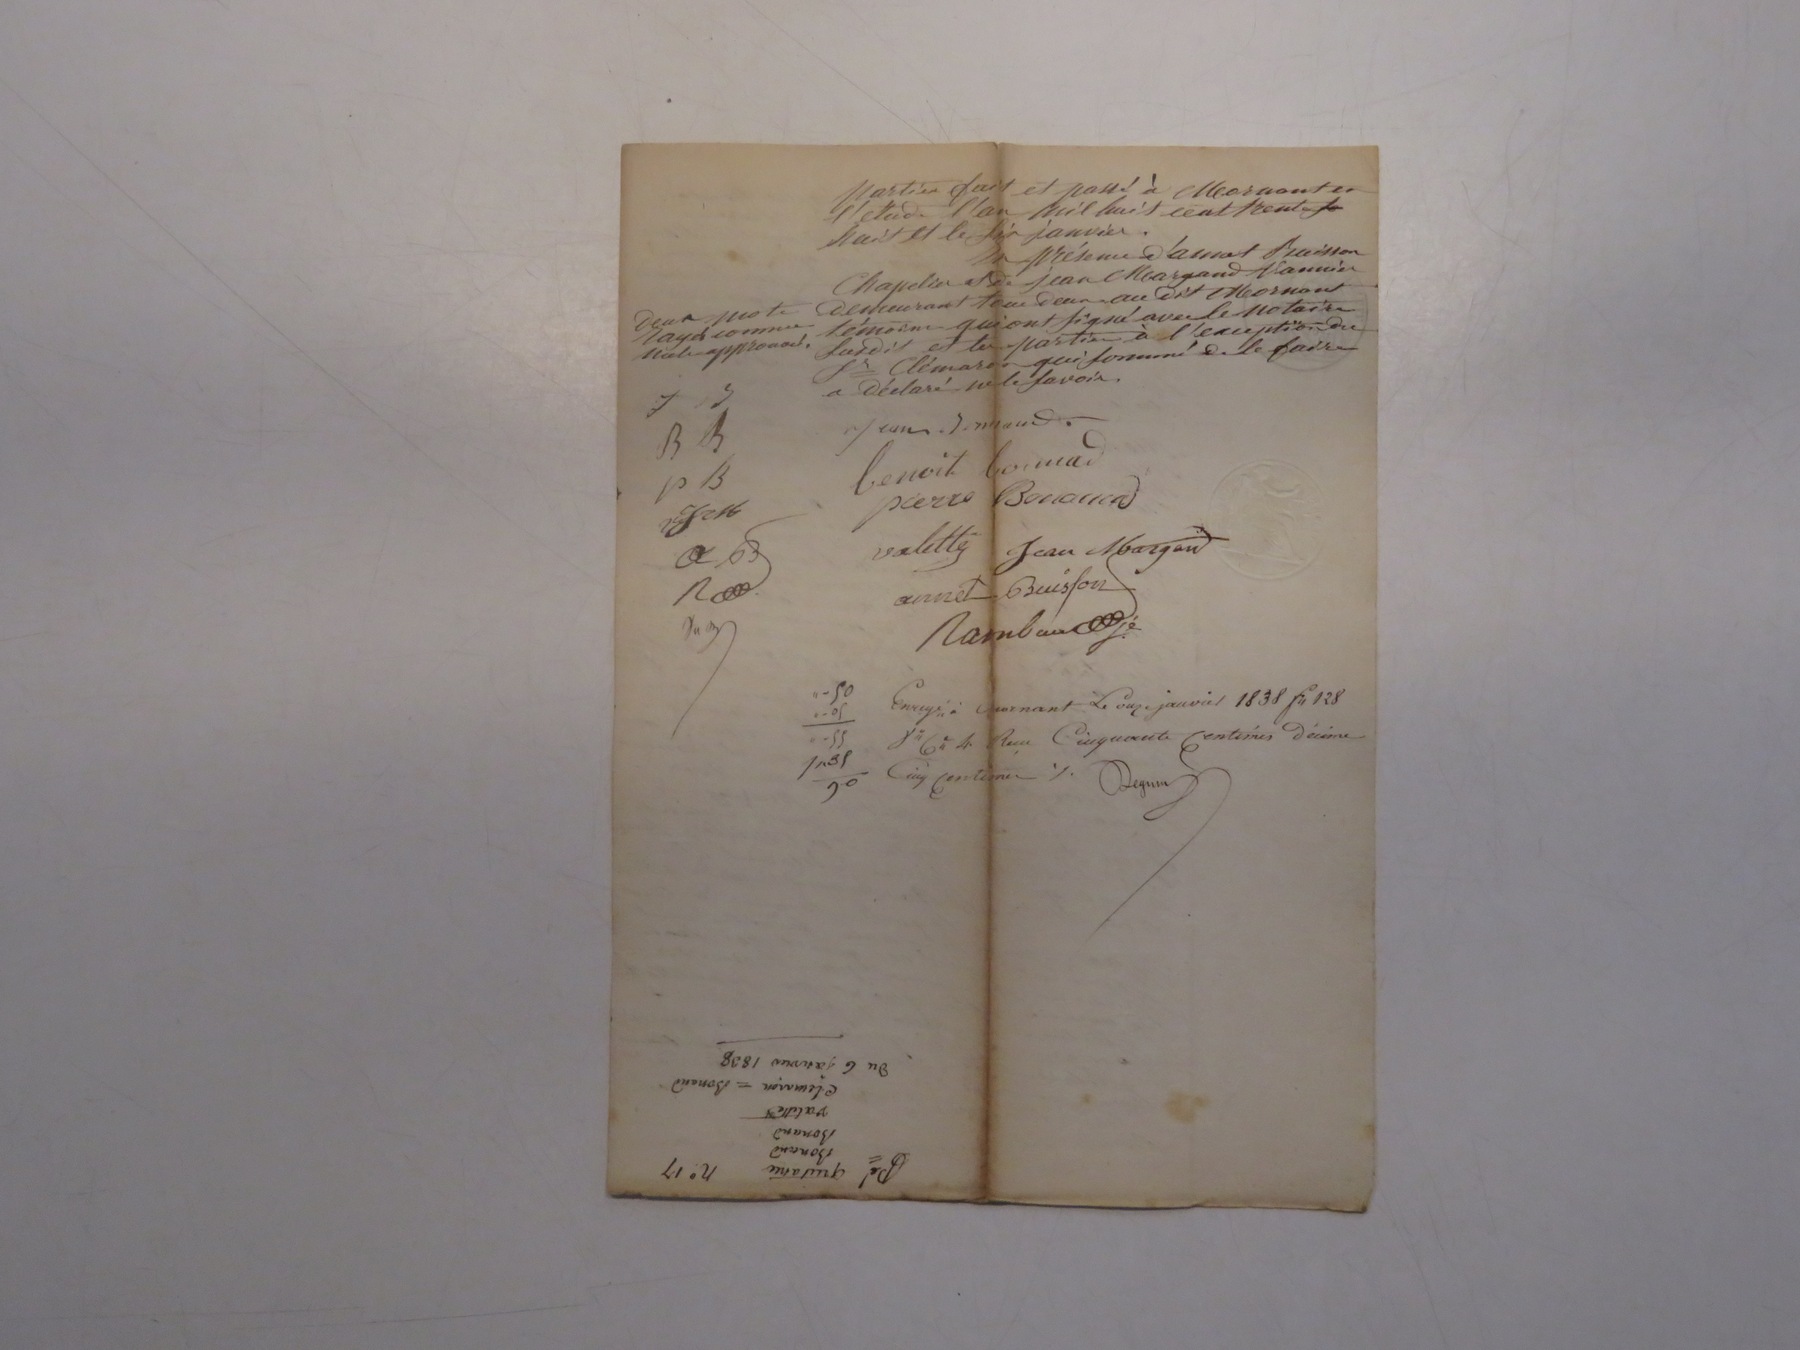 parties fait et passé à Mornant en
l'étude l'an mil huit cent trente
huit et le six janvier.
En présence d'annet Buisson
Chapelier et de jean Margand Vannier
demeurant tous deux au dit Mornant
témoins qui ont signé avec le notaire
susdit et les parties à l'exception du
Sr Clémaron qui sommé de le faire
a déclaré ne le savoir.
deux mots
rayés comme
nuls approuvés.
J J
B B
p B
a B
R
jean Bonnand
benoit bonnad
pierre Bonannd
valette Jean Margand
annet Buisson
Rambau
"-50
50-"
55-"
Enregé à Mornant Le onze janvier 1838 fo 128
Vo Cn 4 Reçu Cinquante centimes décime
Cinq centimes %. Deguin
No 17
Del quittance
Bonand
Bonand
valette
Clémaron = Bonand
Du 6 janvier 1838